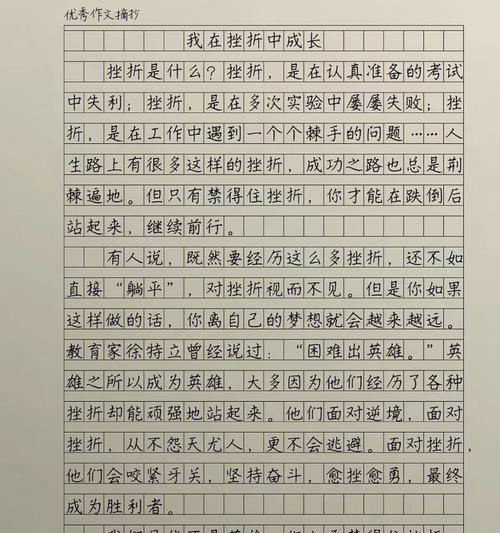 优秀作文摘抄
我在挫折中成长
挫折是什么？挫折，是在认真准备的考试
中失利；挫折，是在多次实验中屡屡失败；挫
折，是在工作中遇到一个个棘手的问题……人
生路上有很多这样的挫折，成功之路也总是荆
棘遍地。但只有禁得住挫折，你才能在跌倒后
站起来，继续前行。
有人说，既然要经历这么多挫折，还不如
直接“躺平”，对挫折视而不见。但是你如果
这样做的话，你离自己的梦想就会越来越远。
教育家徐特立曾经说过：“困难出英雄。”英
雄之所以成为英雄，大多因为他们经历了各种
挫折却能顽强地站起来。他们面对逆境，面对
挫折，从不怨天尤人，更不会逃避。面对挫折，
他们会咬紧牙关，坚持奋斗，愈挫愈勇，最终
成为胜利者。